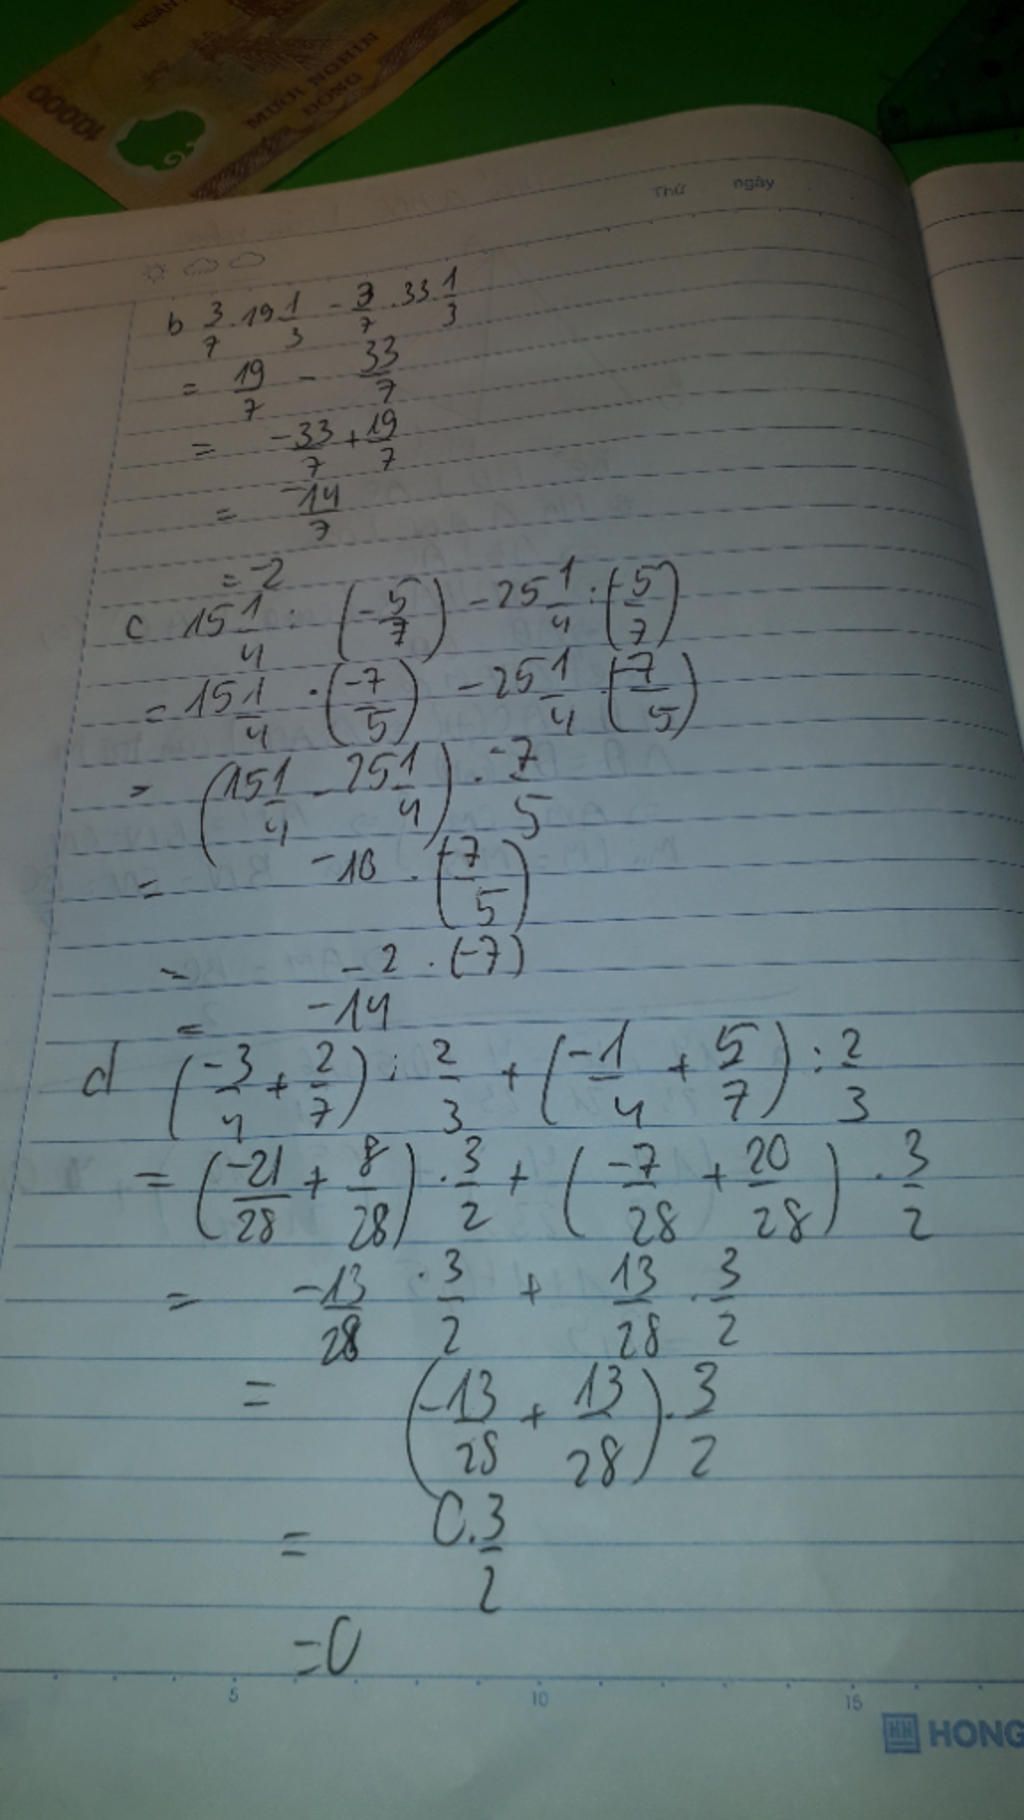 NGÂN
10000
MƯỜI NGHÌN
ĐỒNG
Thứ ngày
b 3/7 . 19 1/3 - 3/7 . 33 . 1/3
= 19/7 - 33/7
= -33/7 + 19/7
= -14/7
= -2
c 15 1/4 : (-5/7) - 25 1/4 : (-5/7)
= 15 1/4 . (-7/5) - 25 1/4 . (-7/5)
= (15 1/4 - 25 1/4) . -7/5
= -10 . (-7/5)
= -2 . (-7)
= -14
d (-3/4 + 2/7) : 2/3 + (-1/4 + 5/7) : 2/3
= (-21/28 + 8/28) . 3/2 + (-7/28 + 20/28) . 3/2
= -13/28 . 3/2 + 13/28 . 3/2
= (-13/28 + 13/28) . 3/2
= 0 . 3/2
= 0
5 10 15
HH HONG